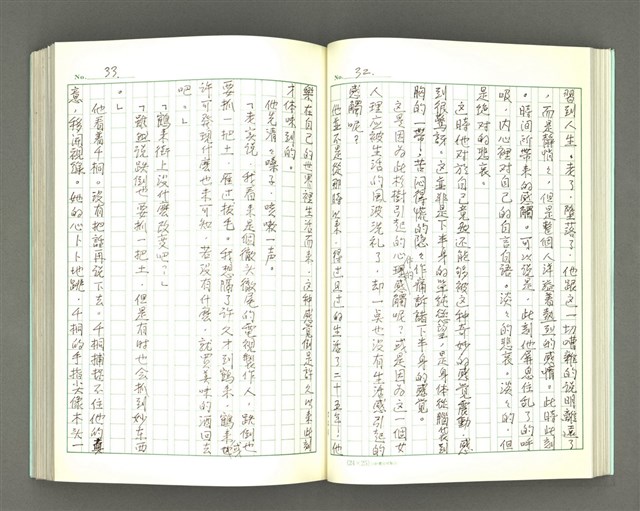 No. 32.
習到人生。老了。墮落了。他跟這一切嘈雜的說明離遠了
，而是靜悄々，但是整個人洋溢著熱烈的感情。此時此刻
。時間所帶來的感觸。可以說是，此刻他屏息住亂了的呼
吸，內心裡對自己的自言自語。淡々的悲哀。淡々的，但
是絕對的悲哀。
這時他對於自己竟然還能夠被這種奇妙的感覺震動，感
到很驚訝。這並非是下半身的單純慾望，是身體從腦袋到
胸的一帶，苦悶得慌的隱々作痛訴諸下半身的感覺。
這是因為此杉樹引起的心理作用的感觸呢？或是因為這一個女
人理應被生活的風波洗禮了，却一點也沒有生活感引起的
感觸呢？
他並不是從那時以來，得過且過的生活了二十五年！他
No. 33.
樂在自己的世界裡生活而來，這種感覺倒是許久以來此刻
才体味到的。
他先清々嗓子，咳嗽一聲。
「老實說，我看來是個徹頭徹尾的電視製作人，跌倒也
要抓一把土，雁過拔毛。我想隔了許久才到鶴來，鶴來或
許可發現什麼也未可知，若沒有什麼，就買美味的酒回去
吧。」
「鶴來街上沒什麼改变吧？」
「雖然說跌倒也要抓一把土，但是有時也会抓到妙東西
。」
他看看千桐。沒有把話再說下去。千桐捕捉不住他的真
意，移開視線。她的心卜卜地跳，千桐的手指尖像木头一